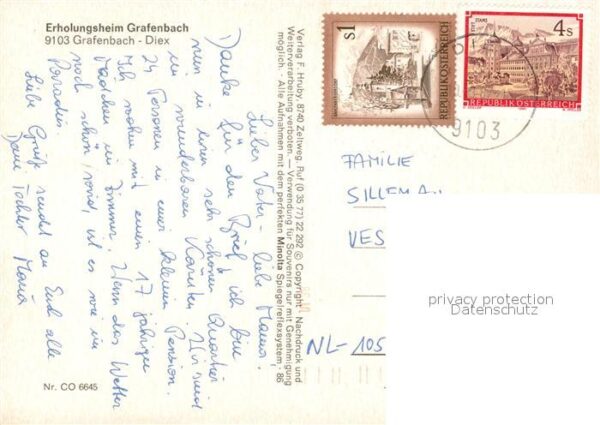 Erholungsheim Grafenbach
9103 Grafenbach - Diex
Lieber Vater - liebe Mama!
Danke für den Brief! ich bin
nun in einem sehr schönen Quartier
im wunderbaren Kärnten. Wir sind
24 Personen in einer kleinen Pension.
Ich wohne mit einem 17 jährigen
Mädchen im Zimmer. Wenn das Wetter
noch schön wird, ist es wie im
Paradies.
Liebe Grüße sendet an Euch alle
Eure Tochter Maria
Nr. CO 6645
Verlag F. Hruby, 8740 Zeltweg, Ruf (0 35 77) 22 292 © Copyright - Nachdruck und
Weiterverarbeitung verboten. - Verwendung für Souvenirs nur mit Genehmigung
möglich - Alle Aufnahmen mit dem perfekten Minolta Spiegelreflexsystem · 86
S1
REPUBLIK ÖSTERREICH
STIFT STAMS
4 S
REPUBLIK ÖSTERREICH
9103
FAMILIE
SILLEM
VES
NL-105
privacy protection
Datenschutz